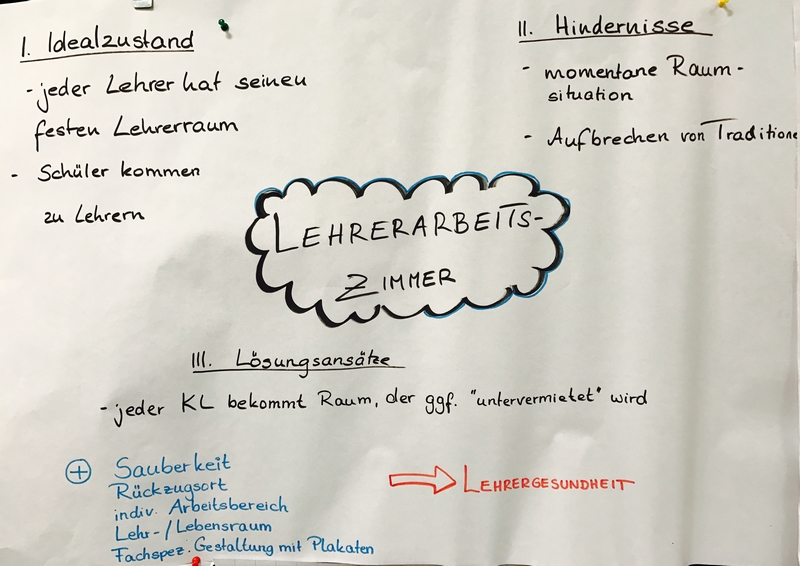 I. Idealzustand
- jeder Lehrer hat seinen
festen Lehrerraum
- Schüler kommen
zu Lehrern
II. Hindernisse
- momentane Raum-
situation
- Aufbrechen von Traditione
LEHRERARBEITS-
ZIMMER
III. Lösungsansätze
- jeder KL bekommt Raum, der ggf. "untervermietet" wird
+ Sauberkeit
Rückzugsort
indiv. Arbeitsbereich
Lehr-/Lebensraum
Fachspez. Gestaltung mit Plakaten
⇒ LEHRERGESUNDHEIT